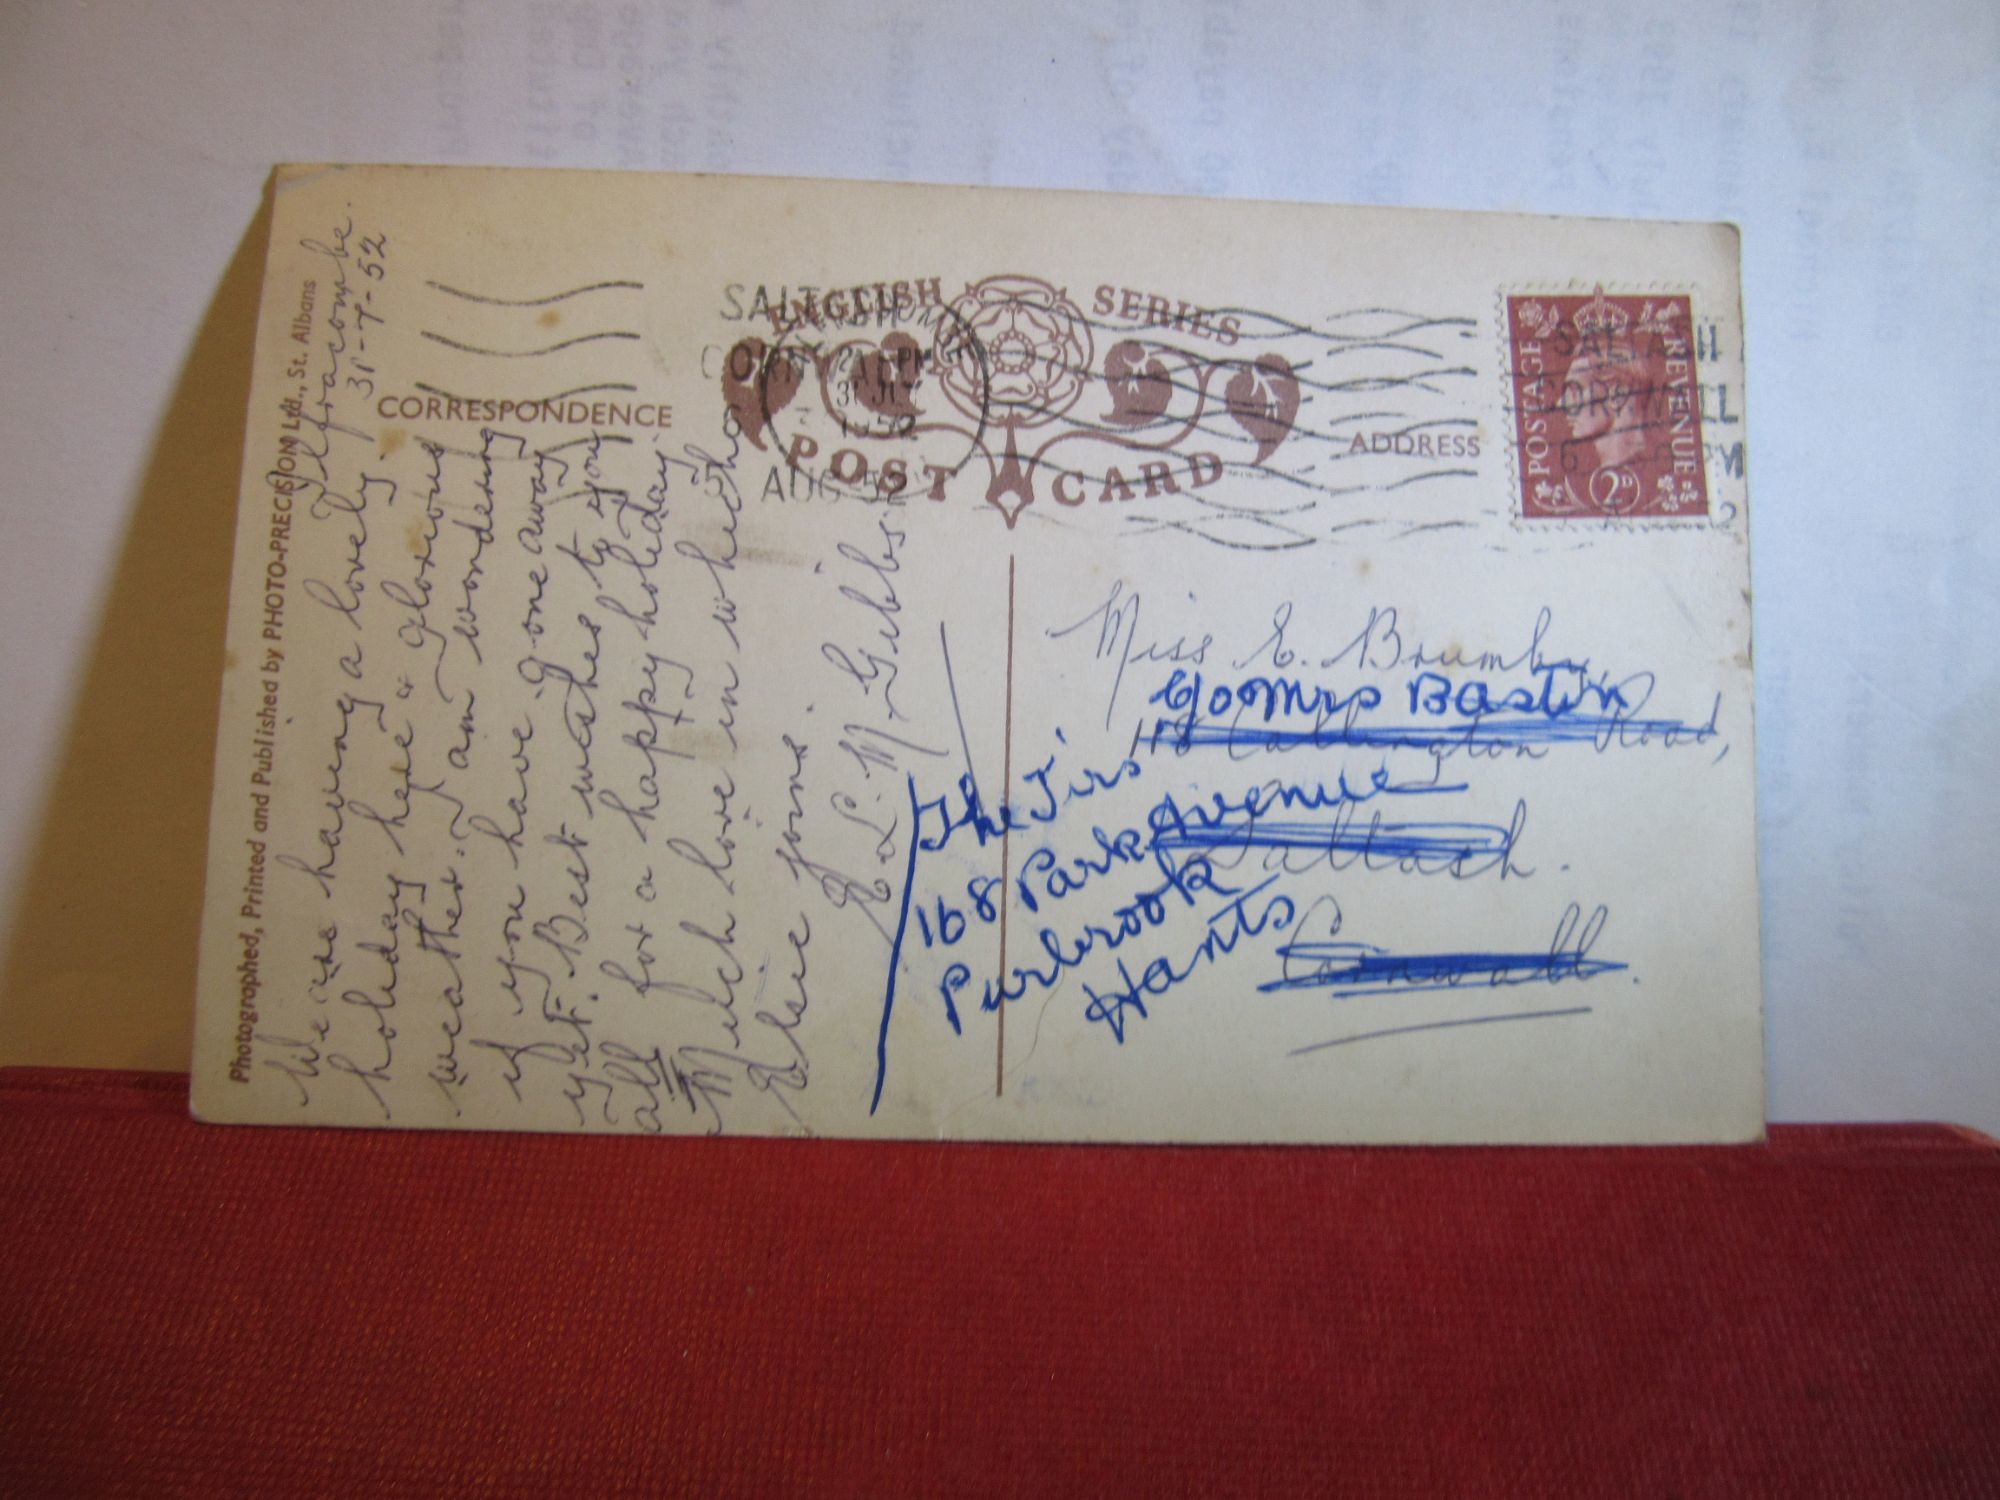 Photographed, Printed and Published by PHOTO-PRECISION Ltd., St. Albans
Ilfracombe.
31-7-52
CORRESPONDENCE
We are having a lovely
holiday here & glorious
weather. I am wondering
if you have gone away
yet. Best wishes to you
all for a happy holiday.
Much love in which
Elsie joins.
E. L. M. Gibbs.
ENGLISH SERIES
POST CARD
SALTASH
CORNWALL
AUG 52
PM
31 JLY
1952
ADDRESS
POSTAGE REVENUE
2D
SALTASH
CORNWALL
6 PM
Miss E. Brumby,
c/o Mrs Bastin
118 Callington Road,
Saltash.
Cornwall.
The Firs,
168 Park Avenue
Purbrook
Hants